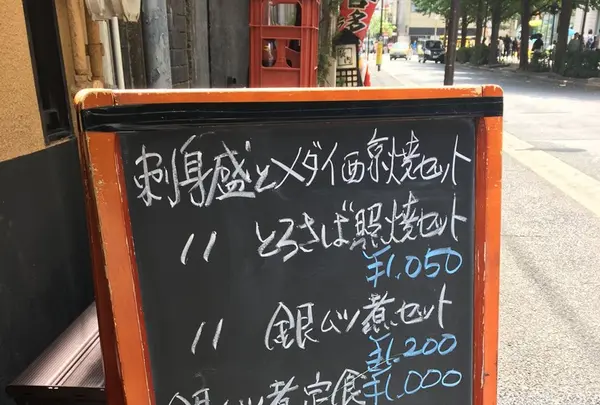 刺身盛とメダイ西京焼セット
〃 とろさば照焼セット
¥1,050
〃 銀ムツ煮セット
¥1,200
銀ムツ煮定食 ¥1,000